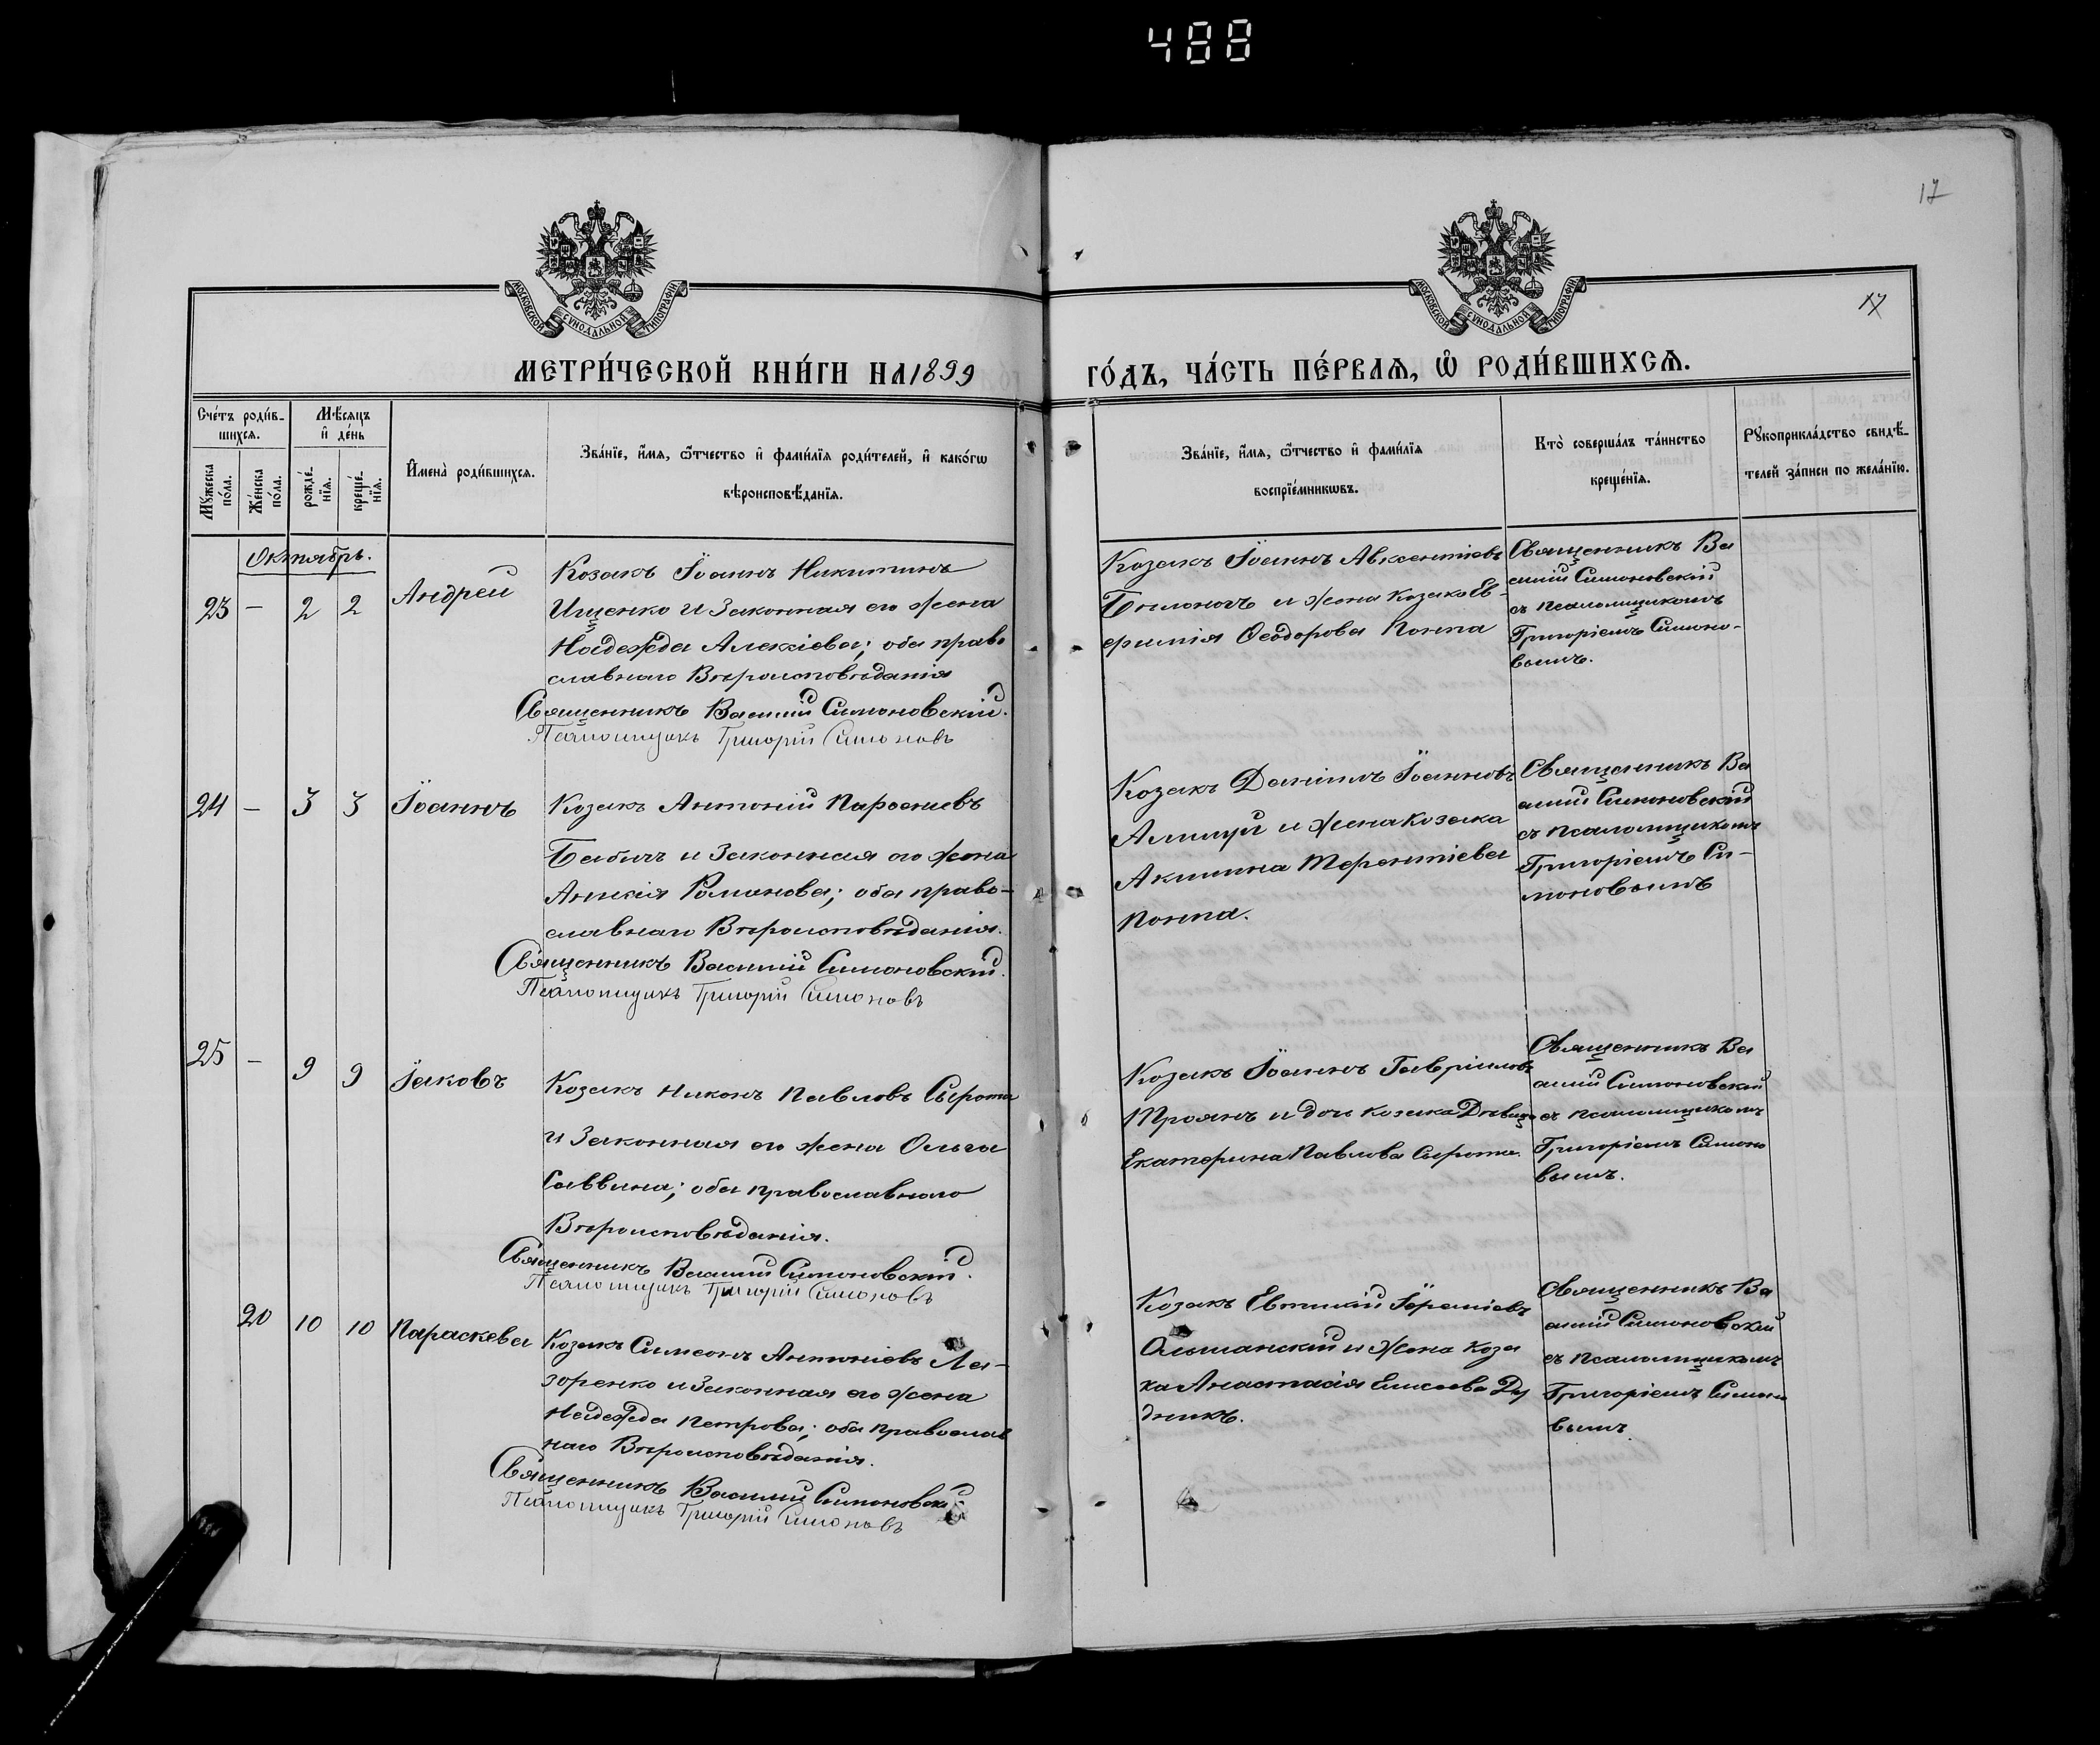 488
17
17
МОСКОВСКОЙ СУНОДАЛЬНОЙ ТИПОГРАФІИ
МОСКОВСКОЙ СУНОДАЛЬНОЙ ТИПОГРАФІИ
МЕТРИ́ЧЕСКОЙ КНИ́ГИ НА 1899
ГО́ДЪ, ЧА́СТЬ ПЕ́РВАѦ, Ѡ҆ РОДИ́ВШИХСѦ.
Сче́тъ роди́в-
шихсѧ.
Мꙋ́жеска по́ла.
Же́нска по́ла.
Мѣ́сѧцъ
и҆ де́нь
рожде́-
нїѧ.
креще́-
нїѧ.
И҆мена̀ роди́вшихсѧ.
Зва́нїе, и҆́мѧ, ѻ҆́тчество и҆ фами́лїѧ роди́телей, и҆ како́гѡ
вѣроисповѣ́данїѧ.
Зва́нїе, и҆́мѧ, ѻ҆́тчество и҆ фами́лїѧ
воспрїе́мникѡвъ.
Кто̀ соверша́лъ та́инство
креще́нїѧ.
Рꙋкоприкла́дство свидѣ́-
телей за́писи по жела́нїю.
Октябрь.
23 — 2 2 Андрей
Козакъ Іоаннъ Никитинъ
Ищенко и Законная его жена
Надежда Алексіева; оба право
славнаго Вѣроисповѣданія
Священникъ Василій Симоновскій.
Псаломщикъ Григорій Симоновъ
Козакъ Іоаннъ Авксентіевъ
и жена Козака Ев-
фимія Ѳеодорова Попна
Священникъ Ва
силій Симоновскій
съ псаломщикомъ
Григоріемъ Симоно-
вымъ.
24 — 3 3 Іоаннъ
Козакъ Антоній Парѳеніевъ
Бабичъ и Законная его жена
Романова; оба право-
славнаго Вѣроисповѣданія.
Священникъ Василій Симоновскій.
Псаломщикъ Григорій Симоновъ
Козакъ Даніилъ Іоанновъ
и жена Козака
Акилина Терентіева
Попна.
Священникъ Ва
силій Симоновскій
съ псаломщикомъ
Григоріемъ Си-
моновымъ
25 — 9 9 Іаковъ
Козакъ Никонъ Павловъ Сырота
и Законная его жена Ольга
Саввина; оба православнаго
Вѣроисповѣданія.
Священникъ Василій Симоновскій.
Псаломщикъ Григорій Симоновъ
Козакъ Іоаннъ Гавріиловъ
Троянъ и дочь Козака Дѣвица
Екатерина Павлова Сырота.
Священникъ Ва
силій Симоновскій
съ псаломщикомъ
Григоріемъ Симоно
вымъ.
20 10 10 Параскева
Козакъ Симеонъ Антоніевъ Ла-
зоренко и Законная его жена
Надежда Петрова; оба православ
наго Вѣроисповѣданія.
Священникъ Василій Симоновскій
Псаломщикъ Григорій Симоновъ
Козакъ Евтихій Іереміевъ
Ольшанскій и Жена Коза
ка Анастасія Елисеева Ду
дникъ.
Священникъ Ва
силій Симоновскій
съ псаломщикомъ
Григоріемъ Симоно
вымъ.